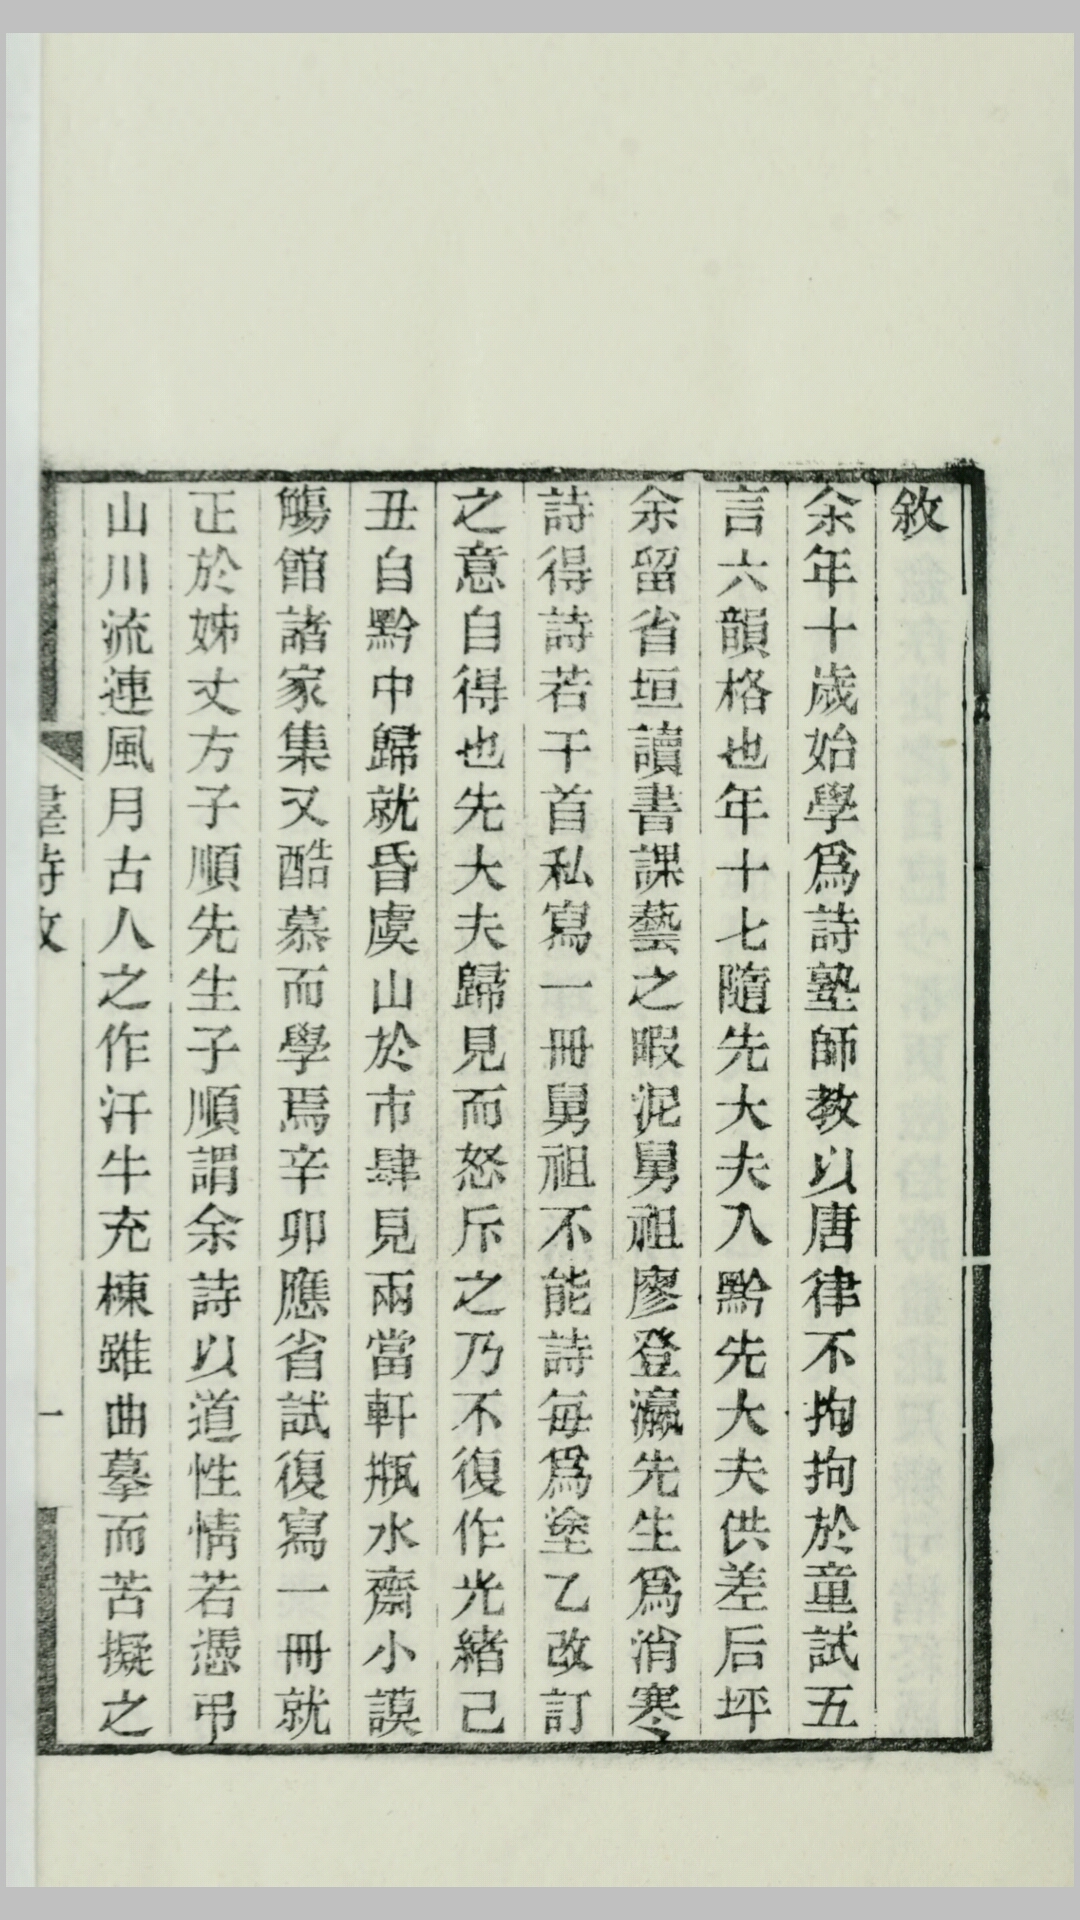 敘
余年十歲始學爲詩塾師教以唐律不拘拘於童試五
言六韻格也年十七隨先大夫入黔先大夫供差后坪
余留省垣讀書課藝之暇泥舅祖廖登瀛先生爲消寒
詩得詩若干首私寫一冊舅祖不能詩每爲塗乙改訂
之意自得也先大夫歸見而怒斥之乃不復作光緒己
丑自黔中歸就昏虞山於市肆見兩當軒瓶水齋小謨
觴館諸家集又酷慕而學焉辛卯應省試復寫一冊就
正於姊丈方子順先生子順謂余詩以道性情若憑弔
山川流連風月古人之作汗牛充棟雖曲摹而苦擬之
詩攷
一